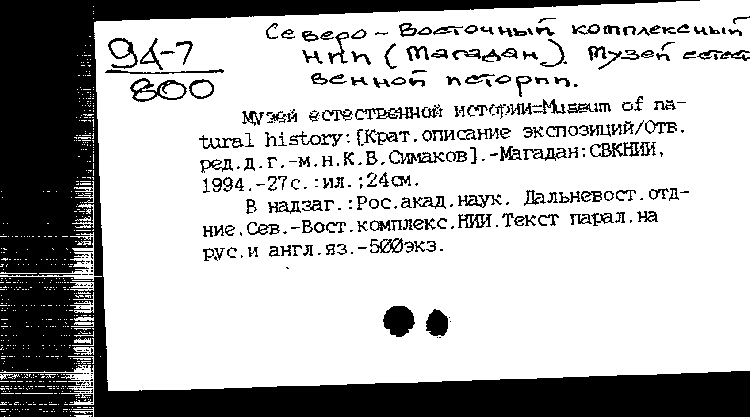 Северо-Восточный комплексный
94-7
НИИ (Магадан). Музей естест
800
венной истории.
Музей естественной истории=Museum of na-
tural history:[Крат.описание экспозиций/Отв.
ред.д.г.-м.н.К.В.Симаков].-Магадан:СВКНИИ,
1994.-27с.:ил.;24см.
В надзаг.:Рос.акад.наук. Дальневост.отд-
ние.Сев.-Вост.комплекс.НИИ.Текст парал.на
рус.и англ.яз.-500экз.